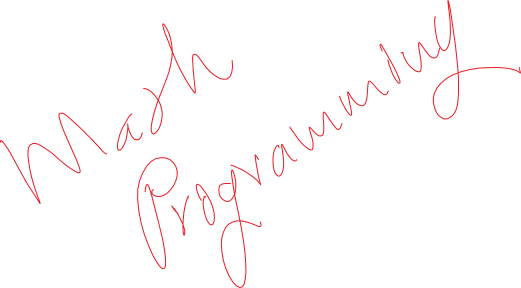 Mash
Programming